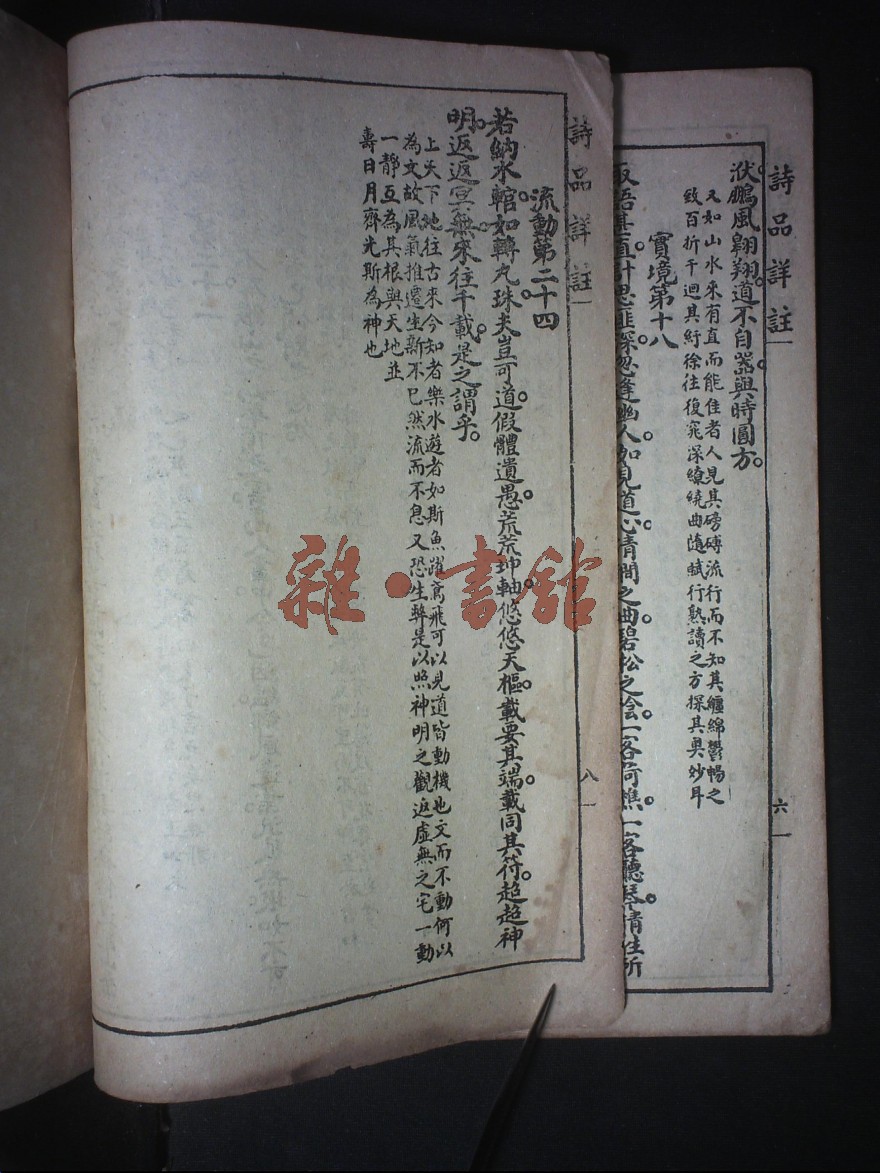 詩品詳註
洑鵬風翺翔道不自器與時圓方
又如山水來有直而能佳者人見其磅礴流行而不知其纏綿鬱暢之
致百折千迴其紆徐往復窕深繚繞曲隨賦行熟讀之方探其奥妙耳
實境第十八
語甚直計思匪深忽逢幽人如見道心清澗之曲碧松之陰一客荷樵一客聽琴情性所
六
詩品詳註
流動第二十四
若納水輨如轉丸珠夫豈可道假體遺愚荒荒坤軸悠悠天樞載要其端載同其符超超神
明返返冥無來往千載是之謂乎
上天下地往古來今知者樂水遊者如斯魚躍鳶飛可以見道皆動機也文而不動何以
為文故風氣推遷生新不已然流而不息又恐生弊是以照神明之觀返虛無之宅一動
一靜互為其根與天地並
壽日月齊光斯為神也
八
雜·書館